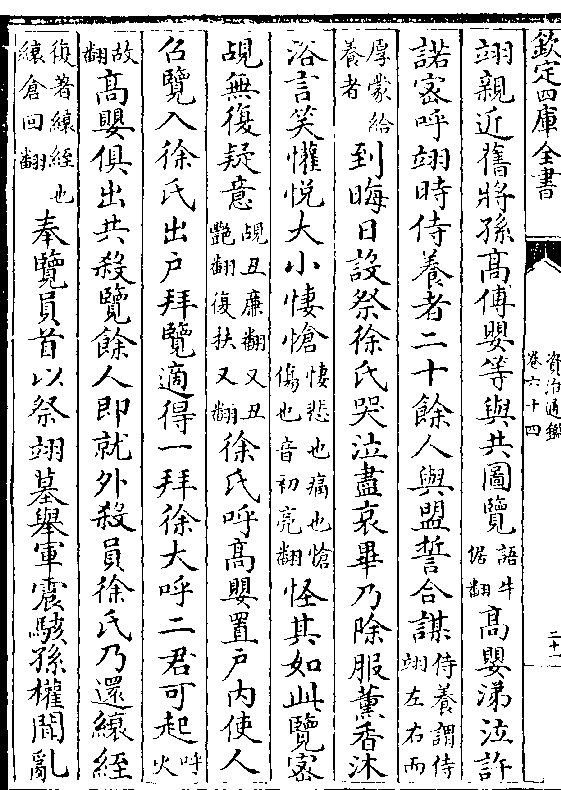 欽定四庫全書
資治通鑑
卷六十四
二十一
翊親近舊將孫高傅嬰等與共圖覽語牛倨翻高嬰涕泣許
諾密呼翊時侍養者二十餘人與盟誓合謀侍養謂侍翊左右而
厚蒙給養者到晦日設祭徐氏哭泣盡哀畢乃除服薰香沐
浴言笑懽悦大小悽愴悽悲也痛也愴傷也音初亮翻怪其如此覽密
覘無復疑意覘丑廉翻又丑豔翻復扶又翻徐氏呼高嬰置戶内使人
召覽入徐氏出戶拜覽適得一拜徐大呼二君可起呼火
故翻高嬰俱出共殺覽餘人即就外殺員徐氏乃還縗絰
復著縗絰也縗倉回翻奉覽員首以祭翊墓舉軍震駭孫權聞亂